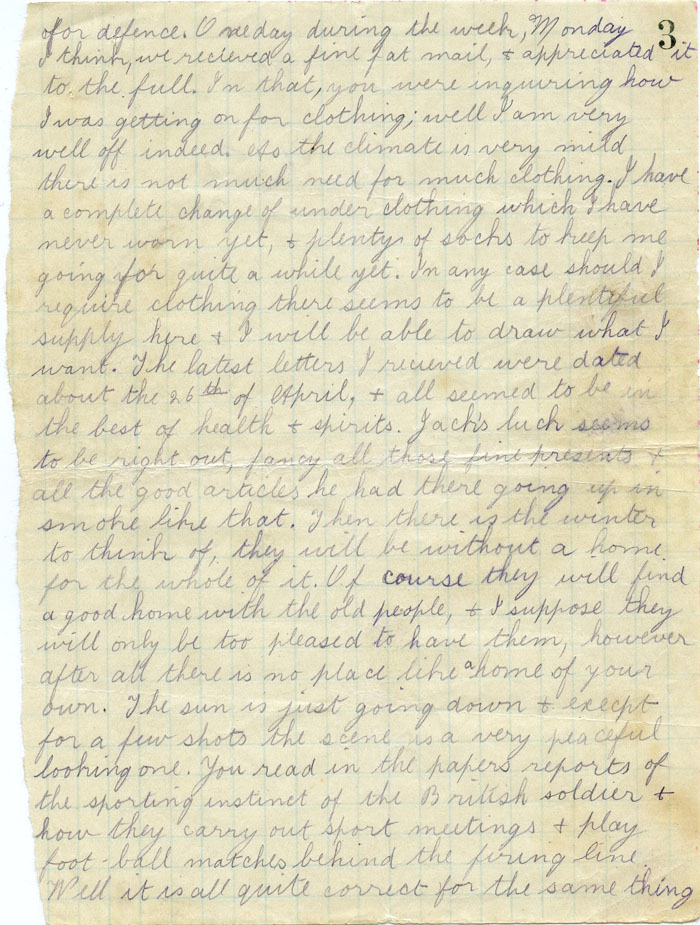 3
for defence. One day during the week, Monday
I think, we recieved a fine fat mail, & appreciated it
to the full. In that, you were inquiring how
I was getting on for clothing; well I am very
well off indeed. As the climate is very mild
there is not much need for much clothing. I have
a complete change of under clothing which I have
never worn yet, & plenty of socks to keep me
going for quite a while yet. In any case should I
require clothing there seems to be a plentiful
supply here & I will be able to draw what I
want. The latest letters I recieved were dated
about the 26th of April, & all seemed to be in
the best of health & spirits. Jack's luck seems
to be right out, fancy all those fine presents &
all the good articles he had there going up in
smoke like that. Then there is the winter
to think of, they will be without a home
for the whole of it. Of course they will find
a good home with the old people, & I suppose they
will only be too pleased to have them, however
after all there is no place like a home of your
own. The sun is just going down & execpt
for a few shots the scene is a very peaceful
looking one. You read in the papers reports of
the sporting instinct of the British soldier &
how they carry out sport meetings & play
foot-ball matches behind the firing line.
Well it is all quite correct for the same thing